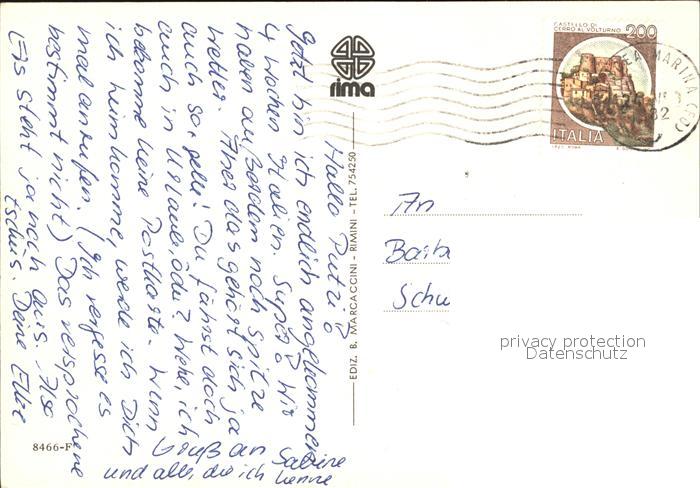 Hallo Putzi!
Jetzt bin ich endlich angekommen.
4 Wochen Italien. Super! Wir
haben außerdem noch spitze
wetter. Aber das gehört sich ja
auch so, gell! Du fährst doch
auch in Urlaub, oder? Wehe, ich
bekomme keine Postkarte. Wenn
ich heimkomme, werde ich Dich
mal anrufen. (Ich vergesse es
bestimmt nicht) Das versprochene
Eis steht ja noch aus. Also
tschüs. Deine Elke
Gruß an Sabine
und alle, die ich kenne
rima
EDIZ. B. MARCACCINI - RIMINI - TEL. 754250
8466-F
CASTELLO DI
CERRO AL VOLTURNO
200
ITALIA
An
Barb
Schu
privacy protection
Datenschutz